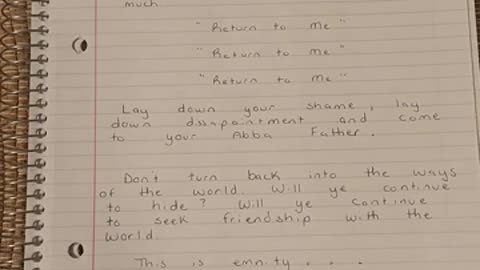 much
" Return to me "
" Return to me "
" Return to me "
Lay down your shame, lay
down dssapointment and come
to your Abba Father.
Don't turn back into the ways
of the world. Will ye continue
to hide? Will ye continue
to seek friendship with the
world.
This is emnity . . .